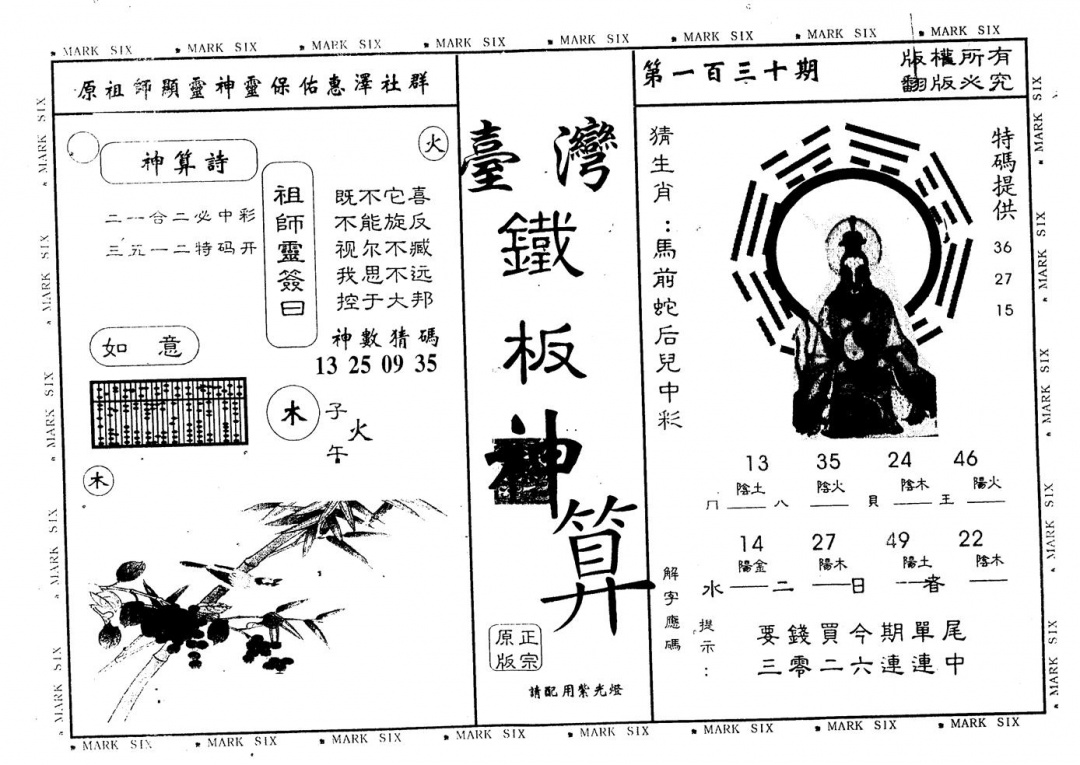 MARK SIX MARK SIX MARK SIX MARK SIX MARK SIX MARK SIX MARK SIX MARK SIX
原祖師顯靈神靈保佑惠澤社群
火
神算詩
二一合二必中彩
三五一二特码开
祖師靈簽曰
既不它喜
不能旋反
视尔不臧
我思不远
控于大邦
神數猜碼
13 25 09 35
如意
木
子
火
午
木
臺灣
鐵
板
神
算
正宗
原版
請配用紫光燈
第一百三十期
版權所有
翻版必究
猜生肖：馬前蛇后兒中彩
特碼提供
36
27
15
13 35 24 46
陰土 陰火 陰木 陽火
八 貝 王
14 27 49 22
陽金 陽木 陽土 陰木
水 二 日 者
解字應碼
提示：
要錢買今期單尾
三零二六連連中
MARK SIX MARK SIX MARK SIX MARK SIX MARK SIX MARK SIX MARK SIX MARK SIX
MARK SIX MARK SIX MARK SIX MARK SIX MARK SIX
MARK SIX MARK SIX MARK SIX MARK SIX MARK SIX